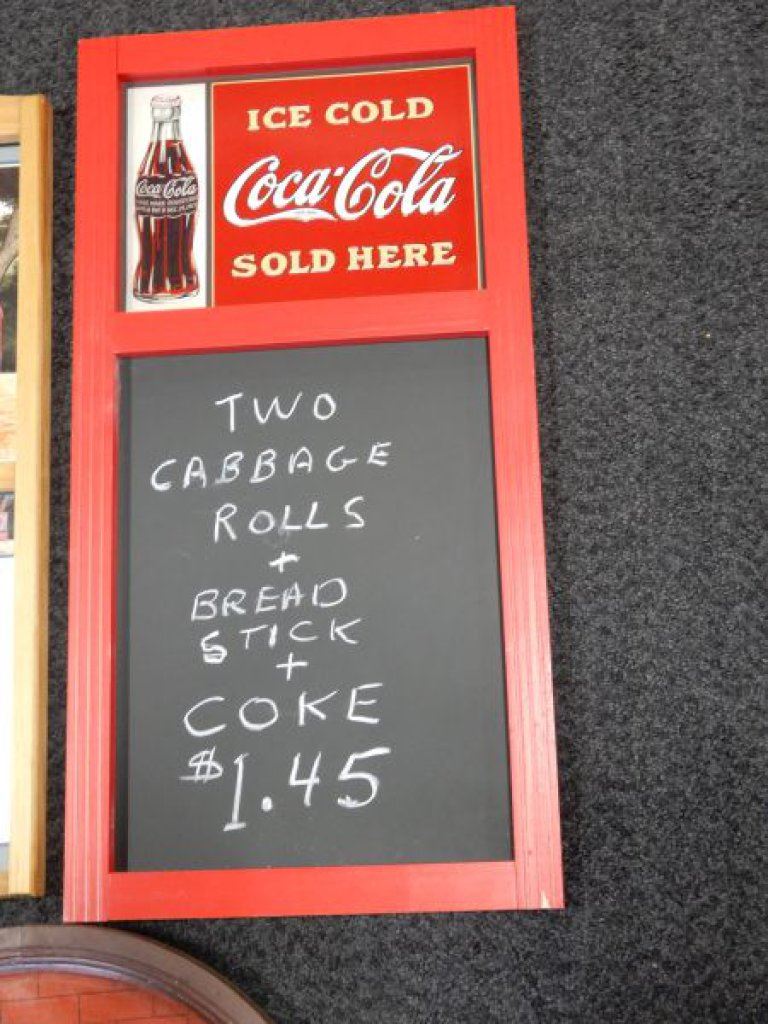 ICE COLD
Coca-Cola
SOLD HERE
Coca-Cola
TWO
CABBAGE
ROLLS
+
BREAD
STICK
+
COKE
$1.45